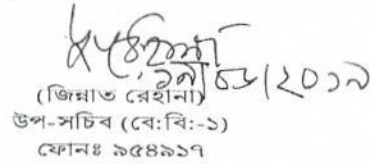 (জিন্নাত রেহানা)
উপ-সচিব (বে:বি:-১)
ফোনঃ ৯৫৪৯১৭